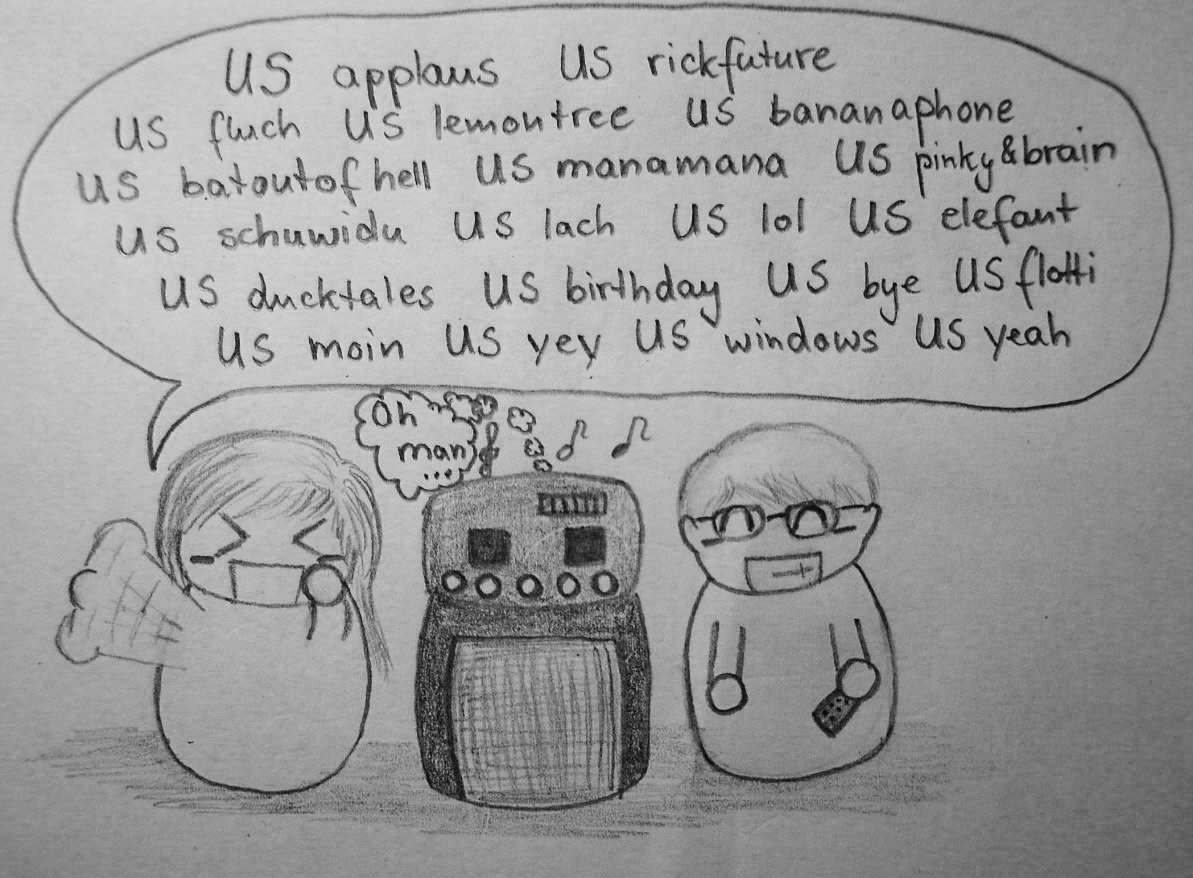 US applaus US rickfuture
US fluch US lemontree US bananaphone
US batoutofhell US manamana US pinky&brain
US schuwidu US lach US lol US elefant
US ducktales US birthday US bye US flotti
US moin US yey US windows US yeah
Oh
man
...